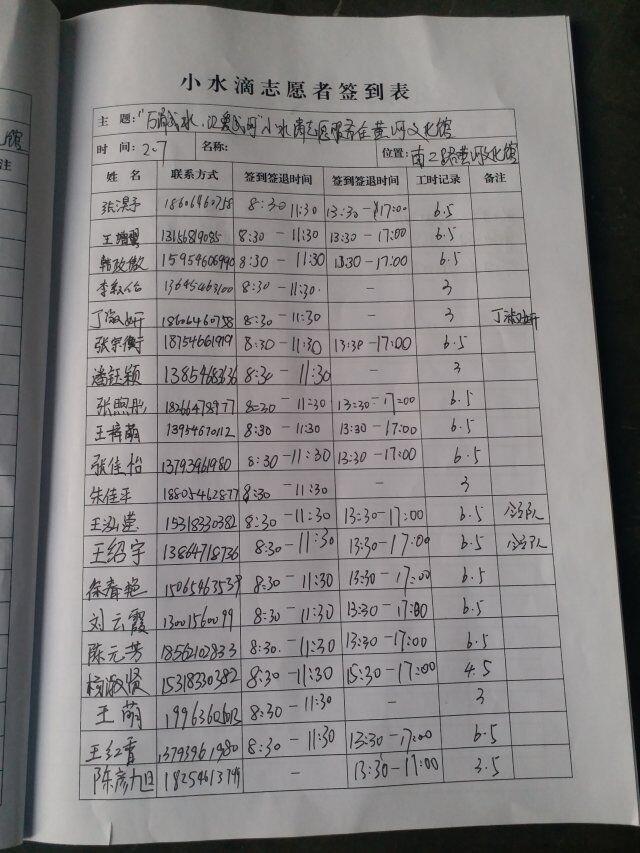 小水滴志愿者签到表
主 题: 小水滴志愿服务在黄河文化馆
时 间: 2.7 名称: 位置: 南二路黄河文化馆
姓 名 联系方式 签到签退时间 签到签退时间 工时记录 备注
18606460758 8:30 11:30 13:30-17:00 6.5
王 8:30 - 11:30 13:30-17:00 6.5
韩政傲 15954606990 8:30 - 11:30 13:30-17:00 6.5
李 13645463100 8:30 - 11:30 - 3
丁 18606460758 8:30 - 11:30 - 3 丁
张宗衡 18754661919 8:30 - 11:30 13:30-17:00 6.5
潘钰颖 8:30 - 11:30 - 3
张煦彤 18266478977 8:30 - 11:30 13:30-17:00 6.5
王梓萌 13954670112 8:30 - 11:30 13:30-17:00 6.5
张佳怡 13793961980 8:30-11:30 13:30-17:00 6.5
朱佳平 18805412877 8:30 - 11:30 - 3
王泓莹 15318330382 8:30 - 11:30 13:30-17:00 6.5
王绍宇 13864718736 8:30 - 11:30 13:30-17:00 6.5
徐春艳 15065463539 8:30 - 11:30 13:30-17:00 6.5
刘云霞 13001560099 8:30 - 11:30 13:30-17:00 6.5
陈元芳 18562102833 8:30 - 11:30 13:30-17:00 6.5
杨淑贤 15318330382 8:30 - 11:30 15:30-17:00 4.5
王萌 8:30 - 11:30 - 3
王红香 13793961980 8:30 - 11:30 13:30-17:00 6.5
陈彦旭 - 13:30-17:00 3.5